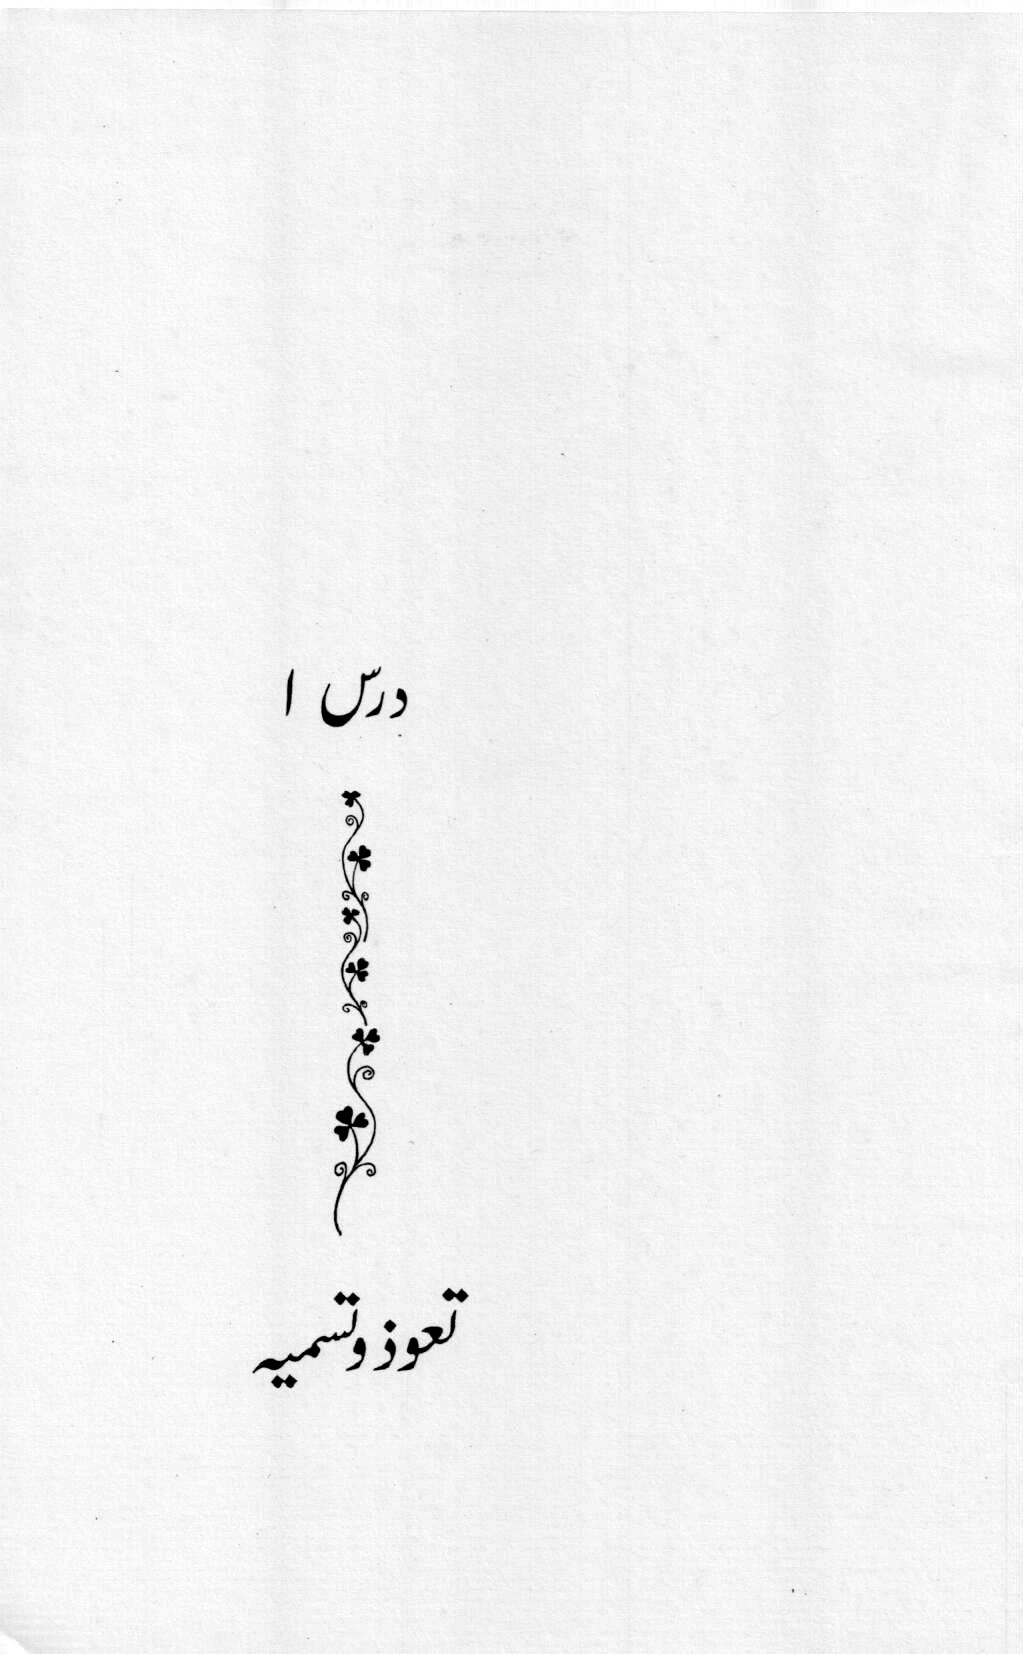 درس ۱
تعوذ و تسمیہ